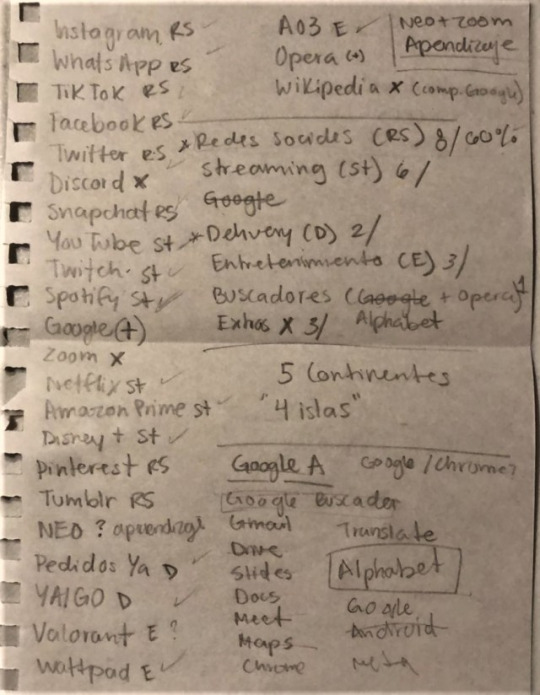 Instagram RS
WhatsApp RS
TikTok RS
Facebook RS
Twitter RS
Discord x
Snapchat RS
YouTube St
Twitch St
Spotify St
Google (+)
Zoom x
Netflix St
Amazon Prime St
Disney + St
Pinterest RS
Tumblr RS
NEO ?
Pedidos Ya D
YAIGO D
Valorant E ?
Wattpad E
AO3 E
Opera (+)
Wikipedia x (comp. Google)
Neo + zoom
Apendizaje
*Redes Sociales (RS) 8/60%
Streaming (St) 6/
Google
*Delivery (D) 2/
Entretenimiento (E) 3/
Buscadores (Google + Opera) 1
Alphabet
Extras x 3/
5 Continentes
"4 islas"
Google A
Google Buscador
Gmail
Drive
Slides
Docs
Meet
Maps
Chrome
Google / Chrome?
Translate
Alphabet
Google
Android
Meta